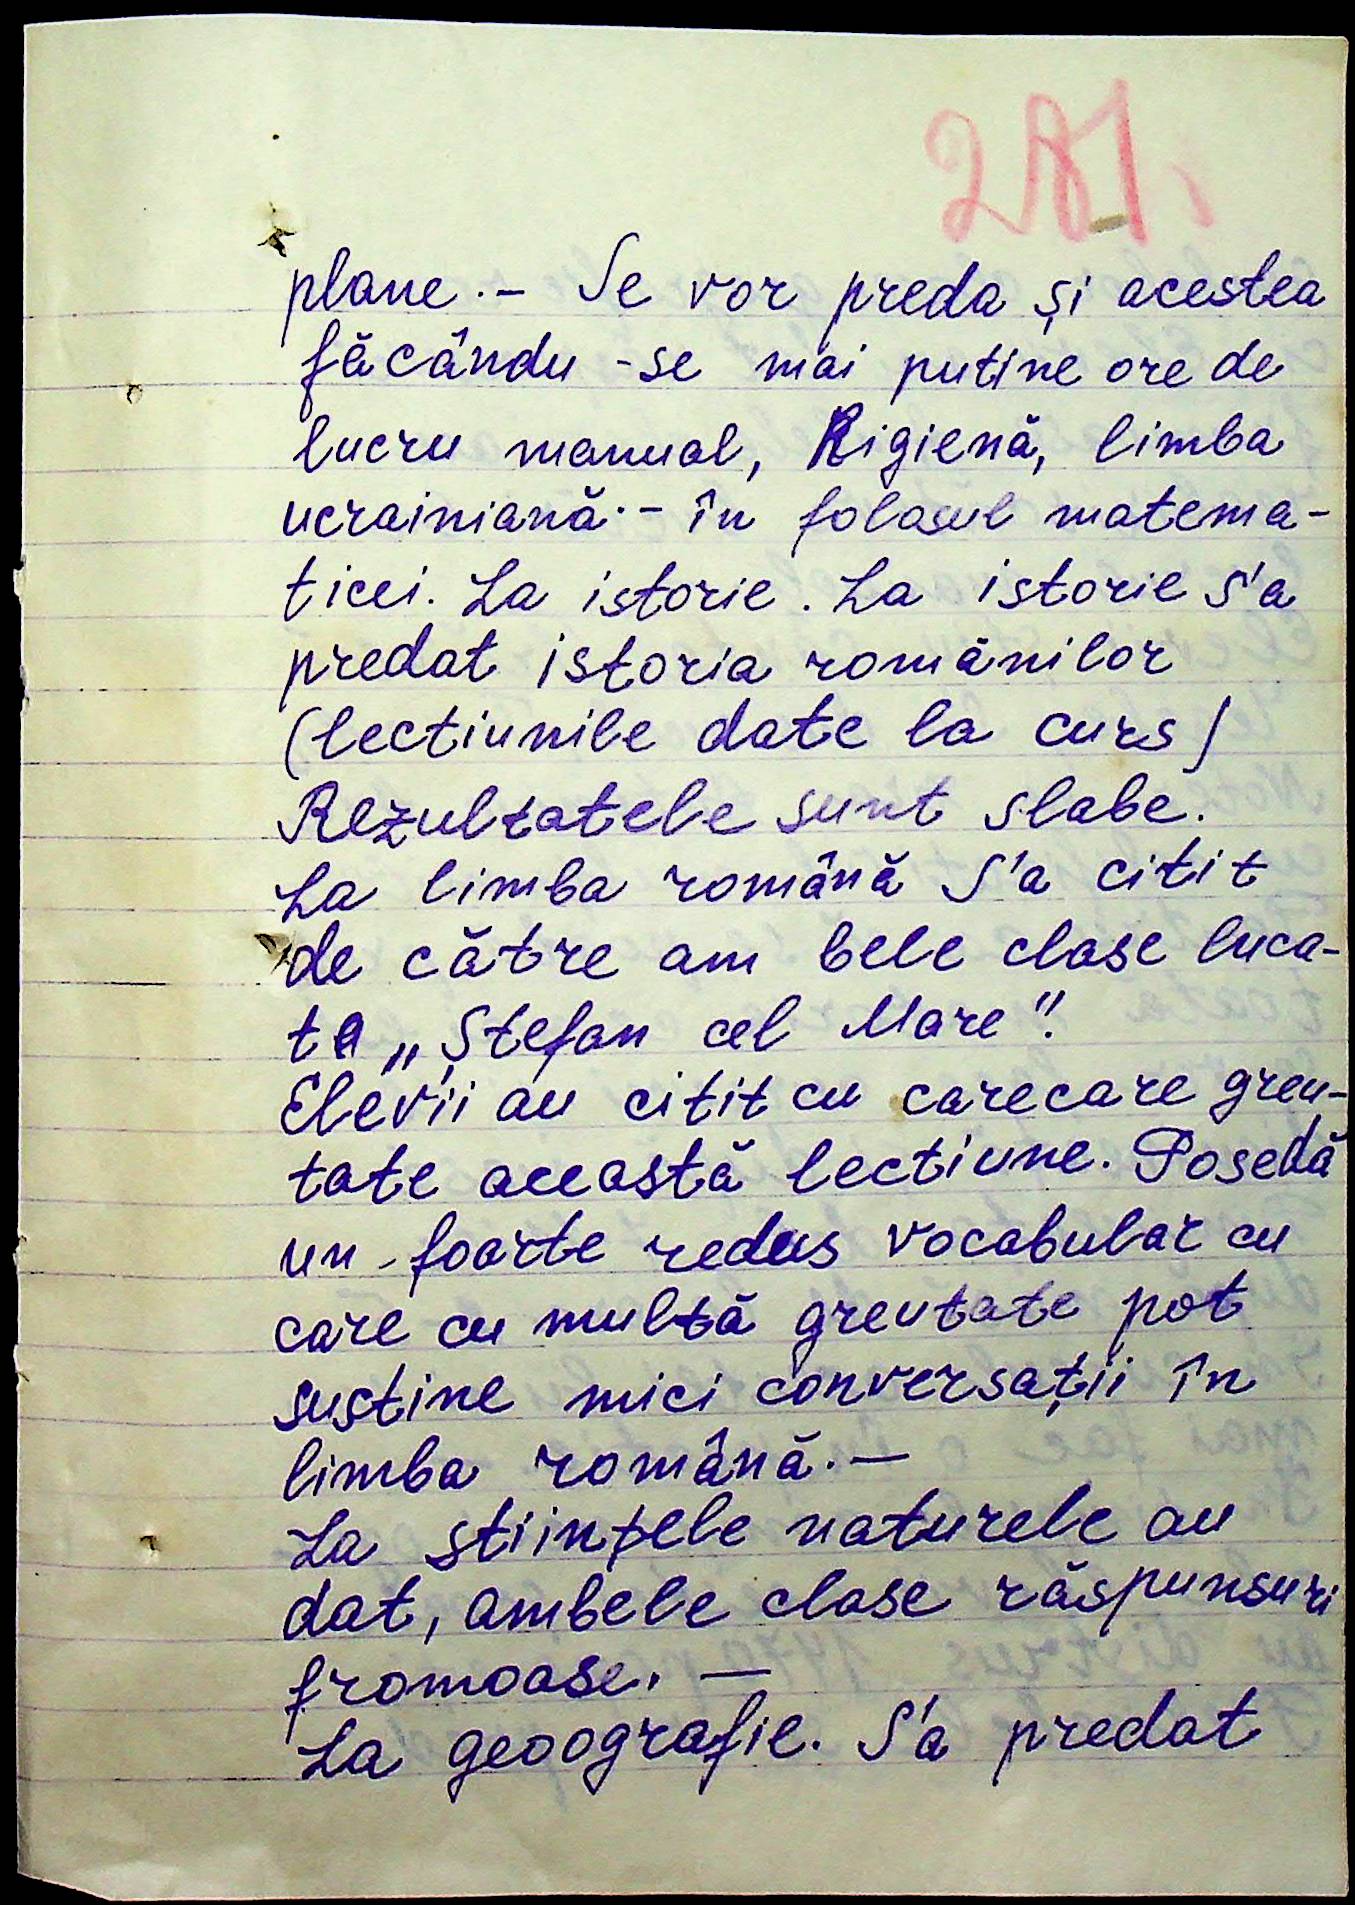 281
plane.- Se vor preda și acestea
făcându-se mai putine ore de
lucru manual, Rigienă, limba
ucrainiană.- în folosul matema-
ticei. La istorie. La istorie s'a
predat istoria românilor
(lectiunile date la curs)
Rezultatele sunt slabe.
La limba română s'a citit
de către am bele clase luca-
ta „Ștefan cel Mare".
Elevii au citit cu carecare greu-
tate această lectiune. Posedă
un foarte redus vocabular cu
care cu multă greutate pot
sustine mici conversații în
limba română.-
La stiințele naturele au
dat, ambele clase răspunsuri
fromoase. -
La geoografie. S'a predat